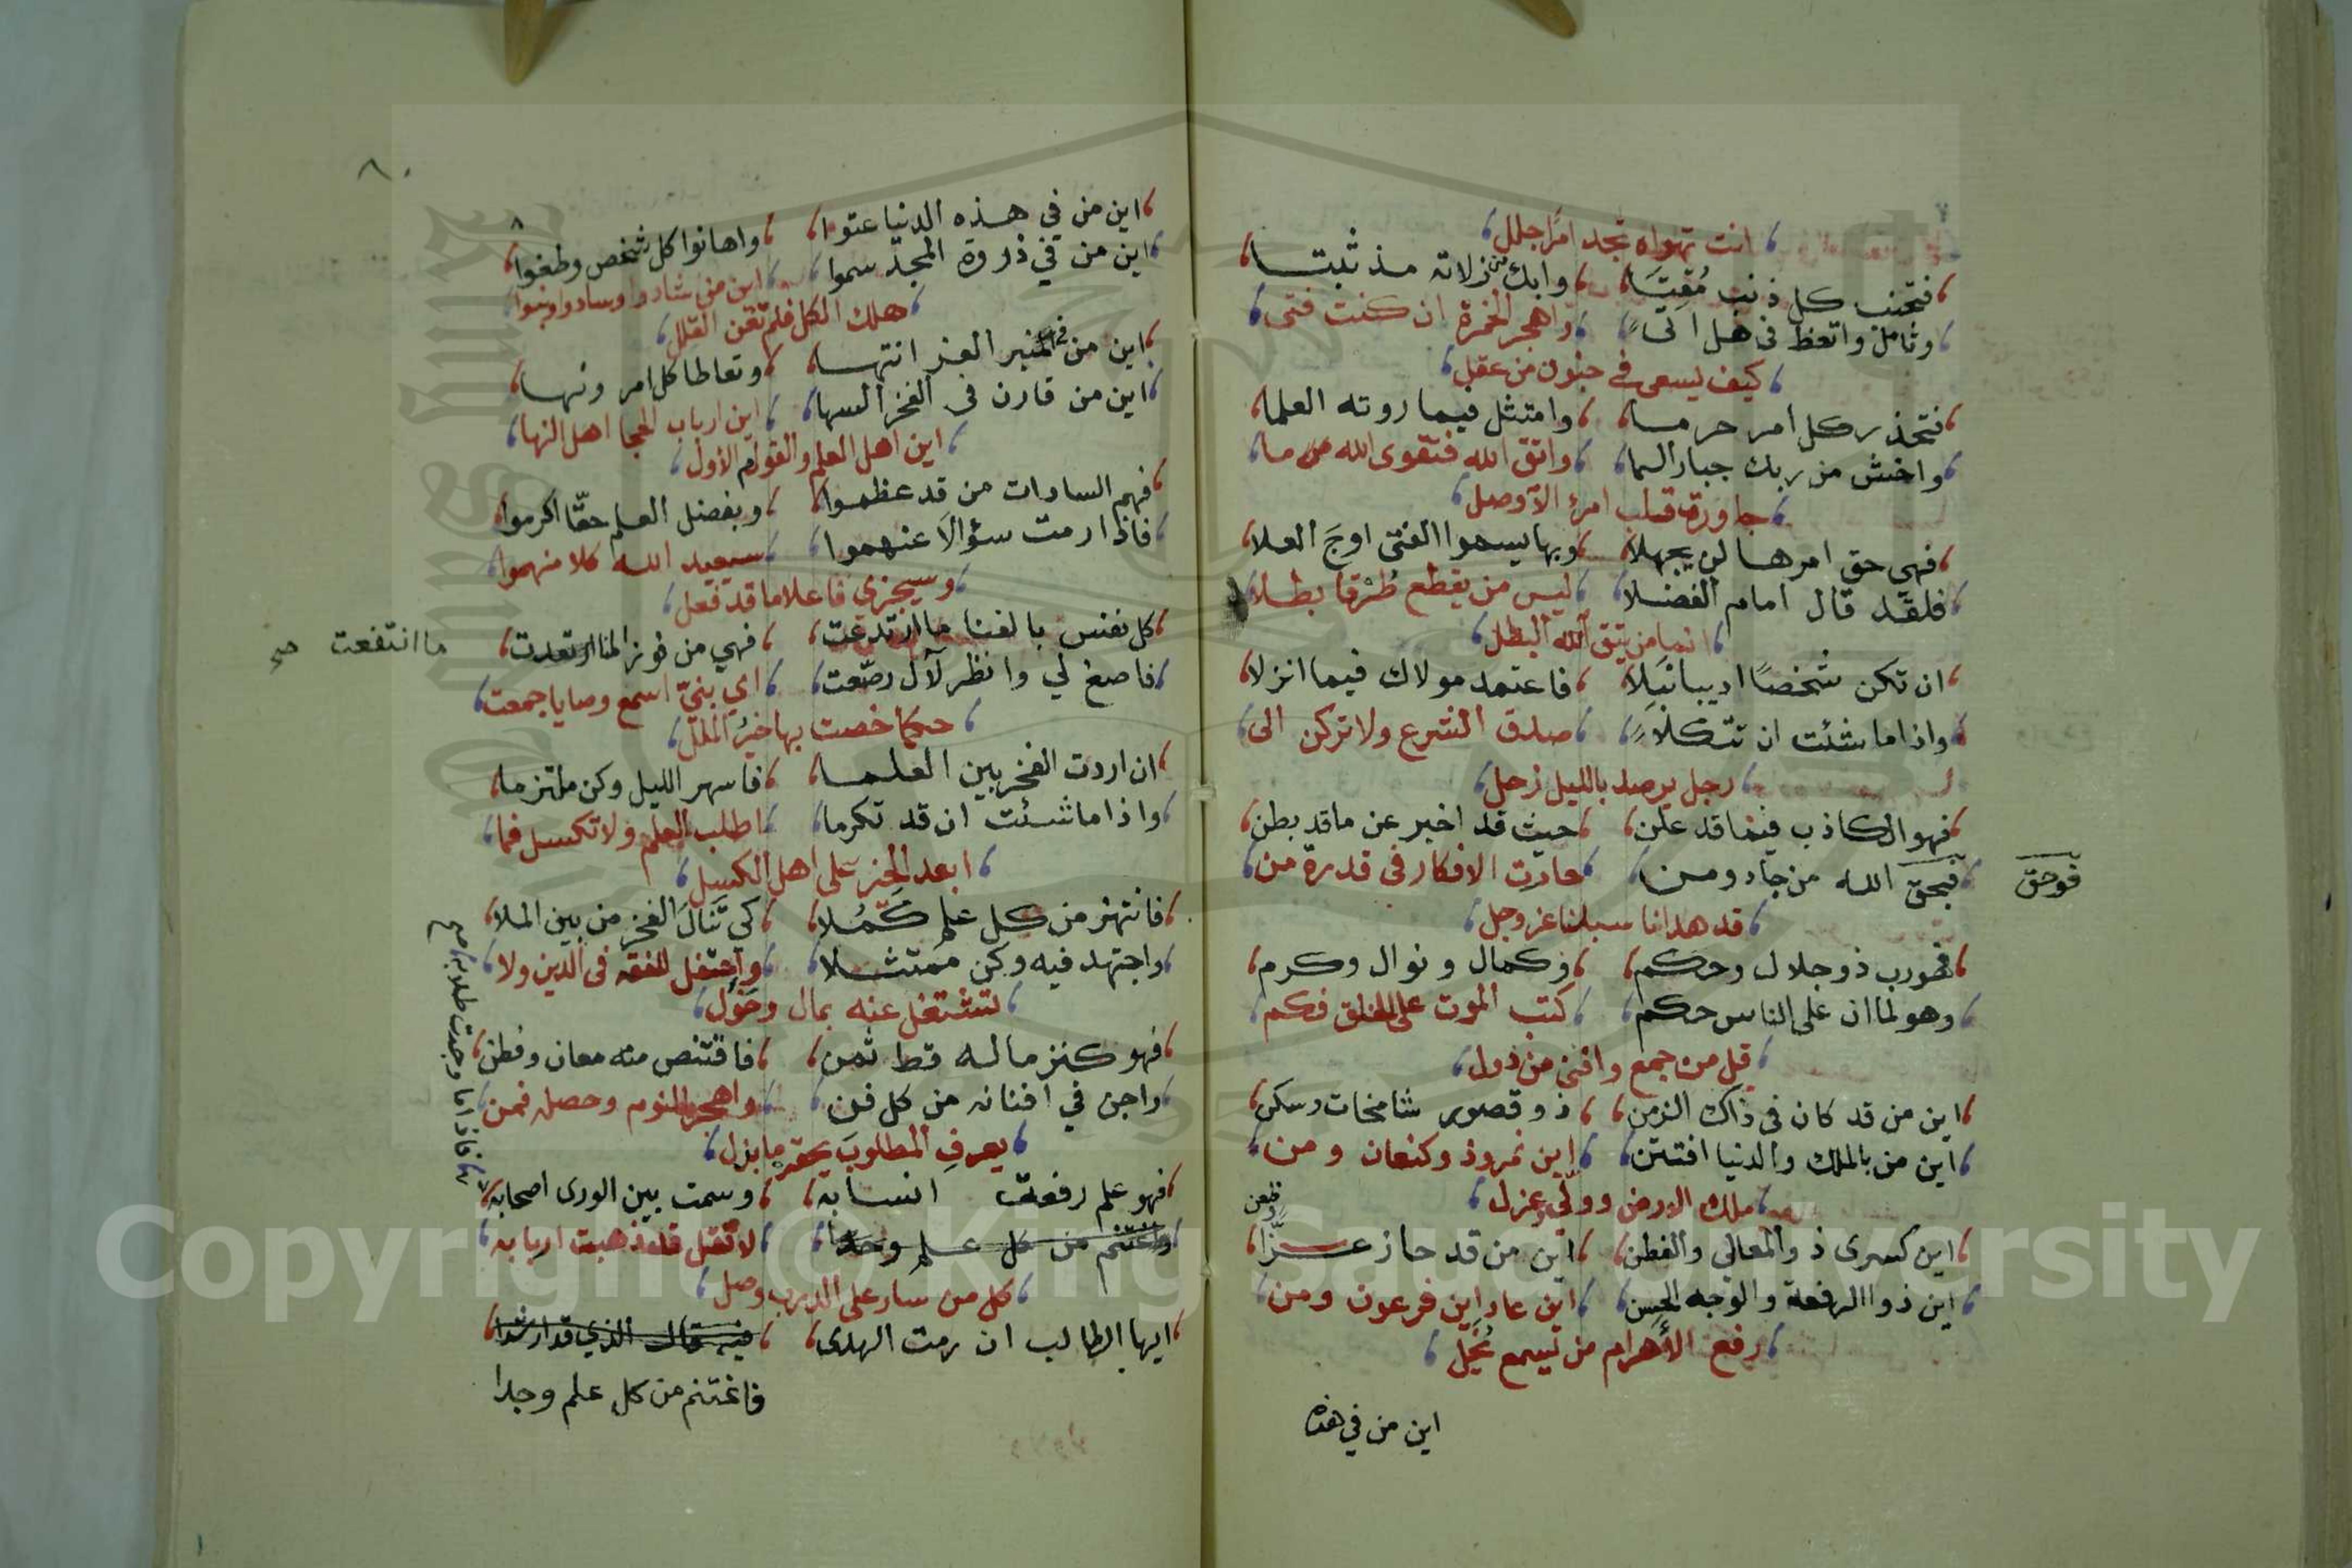 انت تهواه تجد امرًا جلل
فتجنب كل ذنب مُقِتَا وابك من زلاته مذ ثبتا
وتأمل واتعظ في هل اتى واهجر الخمرة ان كنت فتى
كيف يسعى في جنون من عقل
فتحذر كل امر حرما وامتثل فيما روته العلما
واخش من ربك جبار السما واتق الله فتقوى الله ما
جاورت قلب امرء الا وصل
فهي حق امرها لن يجهلا وبها يسموا الفتى اوج العلا
فلقد قال امام الفضلا ليس من يقطع طُرْقا بطلا
انما من يتق الله البطل
ان تكن شخصًا اديبا نَبِلا فاعتمد مولاك فيما انزلا
واذا ما شئت ان تتكلا صدق الشرع ولا تركن الى
رجل يرصد بالليل زحل
فهو الكاذب فيما قد علن حيث قد اخبر عن ما قد بطن
فبحق الله من جاد ومن حارت الافكار في قدرة من
فوحق
قد هدانا سبلنا عز وجل
فهو رب ذو جلال وحكم وكمال ونوال وكرم
وهو لما ان على الناس حكم كتب الموت على الخلق فكم
فل من جمع وافنى من دول
اين من قد كان في ذاك الزمن ذو قصور شامخات وسكن
اين من بالملك والدنيا افتتن اين نمروذ وكنعان ومن
ملك الارض وولّى وعزل
اين كسرى ذو المعالي والفطن اين من قد حاز عزّا
وظعن
اين ذوا الرفعة والوجه الحسن اين عاد اين فرعون ومن
رفع الأهرام من يسمع يُخَل
اين من في هذه
٨٠
٨
اين من في هذه الدنيا عتوا واهانوا كل شخص وطغوا
اين من في ذروة المجد سموا اين من شادوا وسادوا وبنوا
هلك الكل فلم تغن القلل
اين من في منبر العز انتها وتعاطا كل امر ونها
اين من قارن في الفخر السها اين ارباب الحجا اهل النها
اين اهل العلم والقوم الأول
فهم السادات من قد عظموا وبفضل العلم حقّا اكرموا
فاذا رمت سؤالًا عنهموا سيعيد الله كلا منهموا
وسيجزي فاعلا ما قد فعل
كل نفس بالفنا ما ارتدعت فهي من فوز المنا
ما انتفعت صح
فاصغ لي وانظر لآل رصّعت اي بنيّ اسمع وصايا جمعت
حكما خصت بها خيرُ الملل
ان اردت الفخر بين العلما فاسهر الليل وكن ملتزما
واذا ما شئت ان قد تكرما اطلب العلم ولا تكسل فما
ابعد الخير على اهل الكسل
فانتهز من كل علم كَمُلا كي تَنالَ الفخر من بين الملا
واجتهد فيه وكن ممتثلا واحتفل للفقه في الدين ولا
تشتغل عنه بمال وخَوَل
فهو كنز ما له قط ثمن فاقتنص منه معان وفطن
واجن في افنانه من كل فن واهجر النوم وحصله فمن
يعرفِ المطلوبَ يحقرْ ما بذل
فهو علم رفعت انسابه وسمت بين الورى اصحابه
واغتنم من كل علم وجدا لا تقل قد ذهبت اربابه
فاذا ما وجدت طلابه صح
كل من سار على الدرب وصل
ايها الطالب ان رمت الهدى فيه قال الذي قد ارشدا
فاغتنم من كل علم وجدا